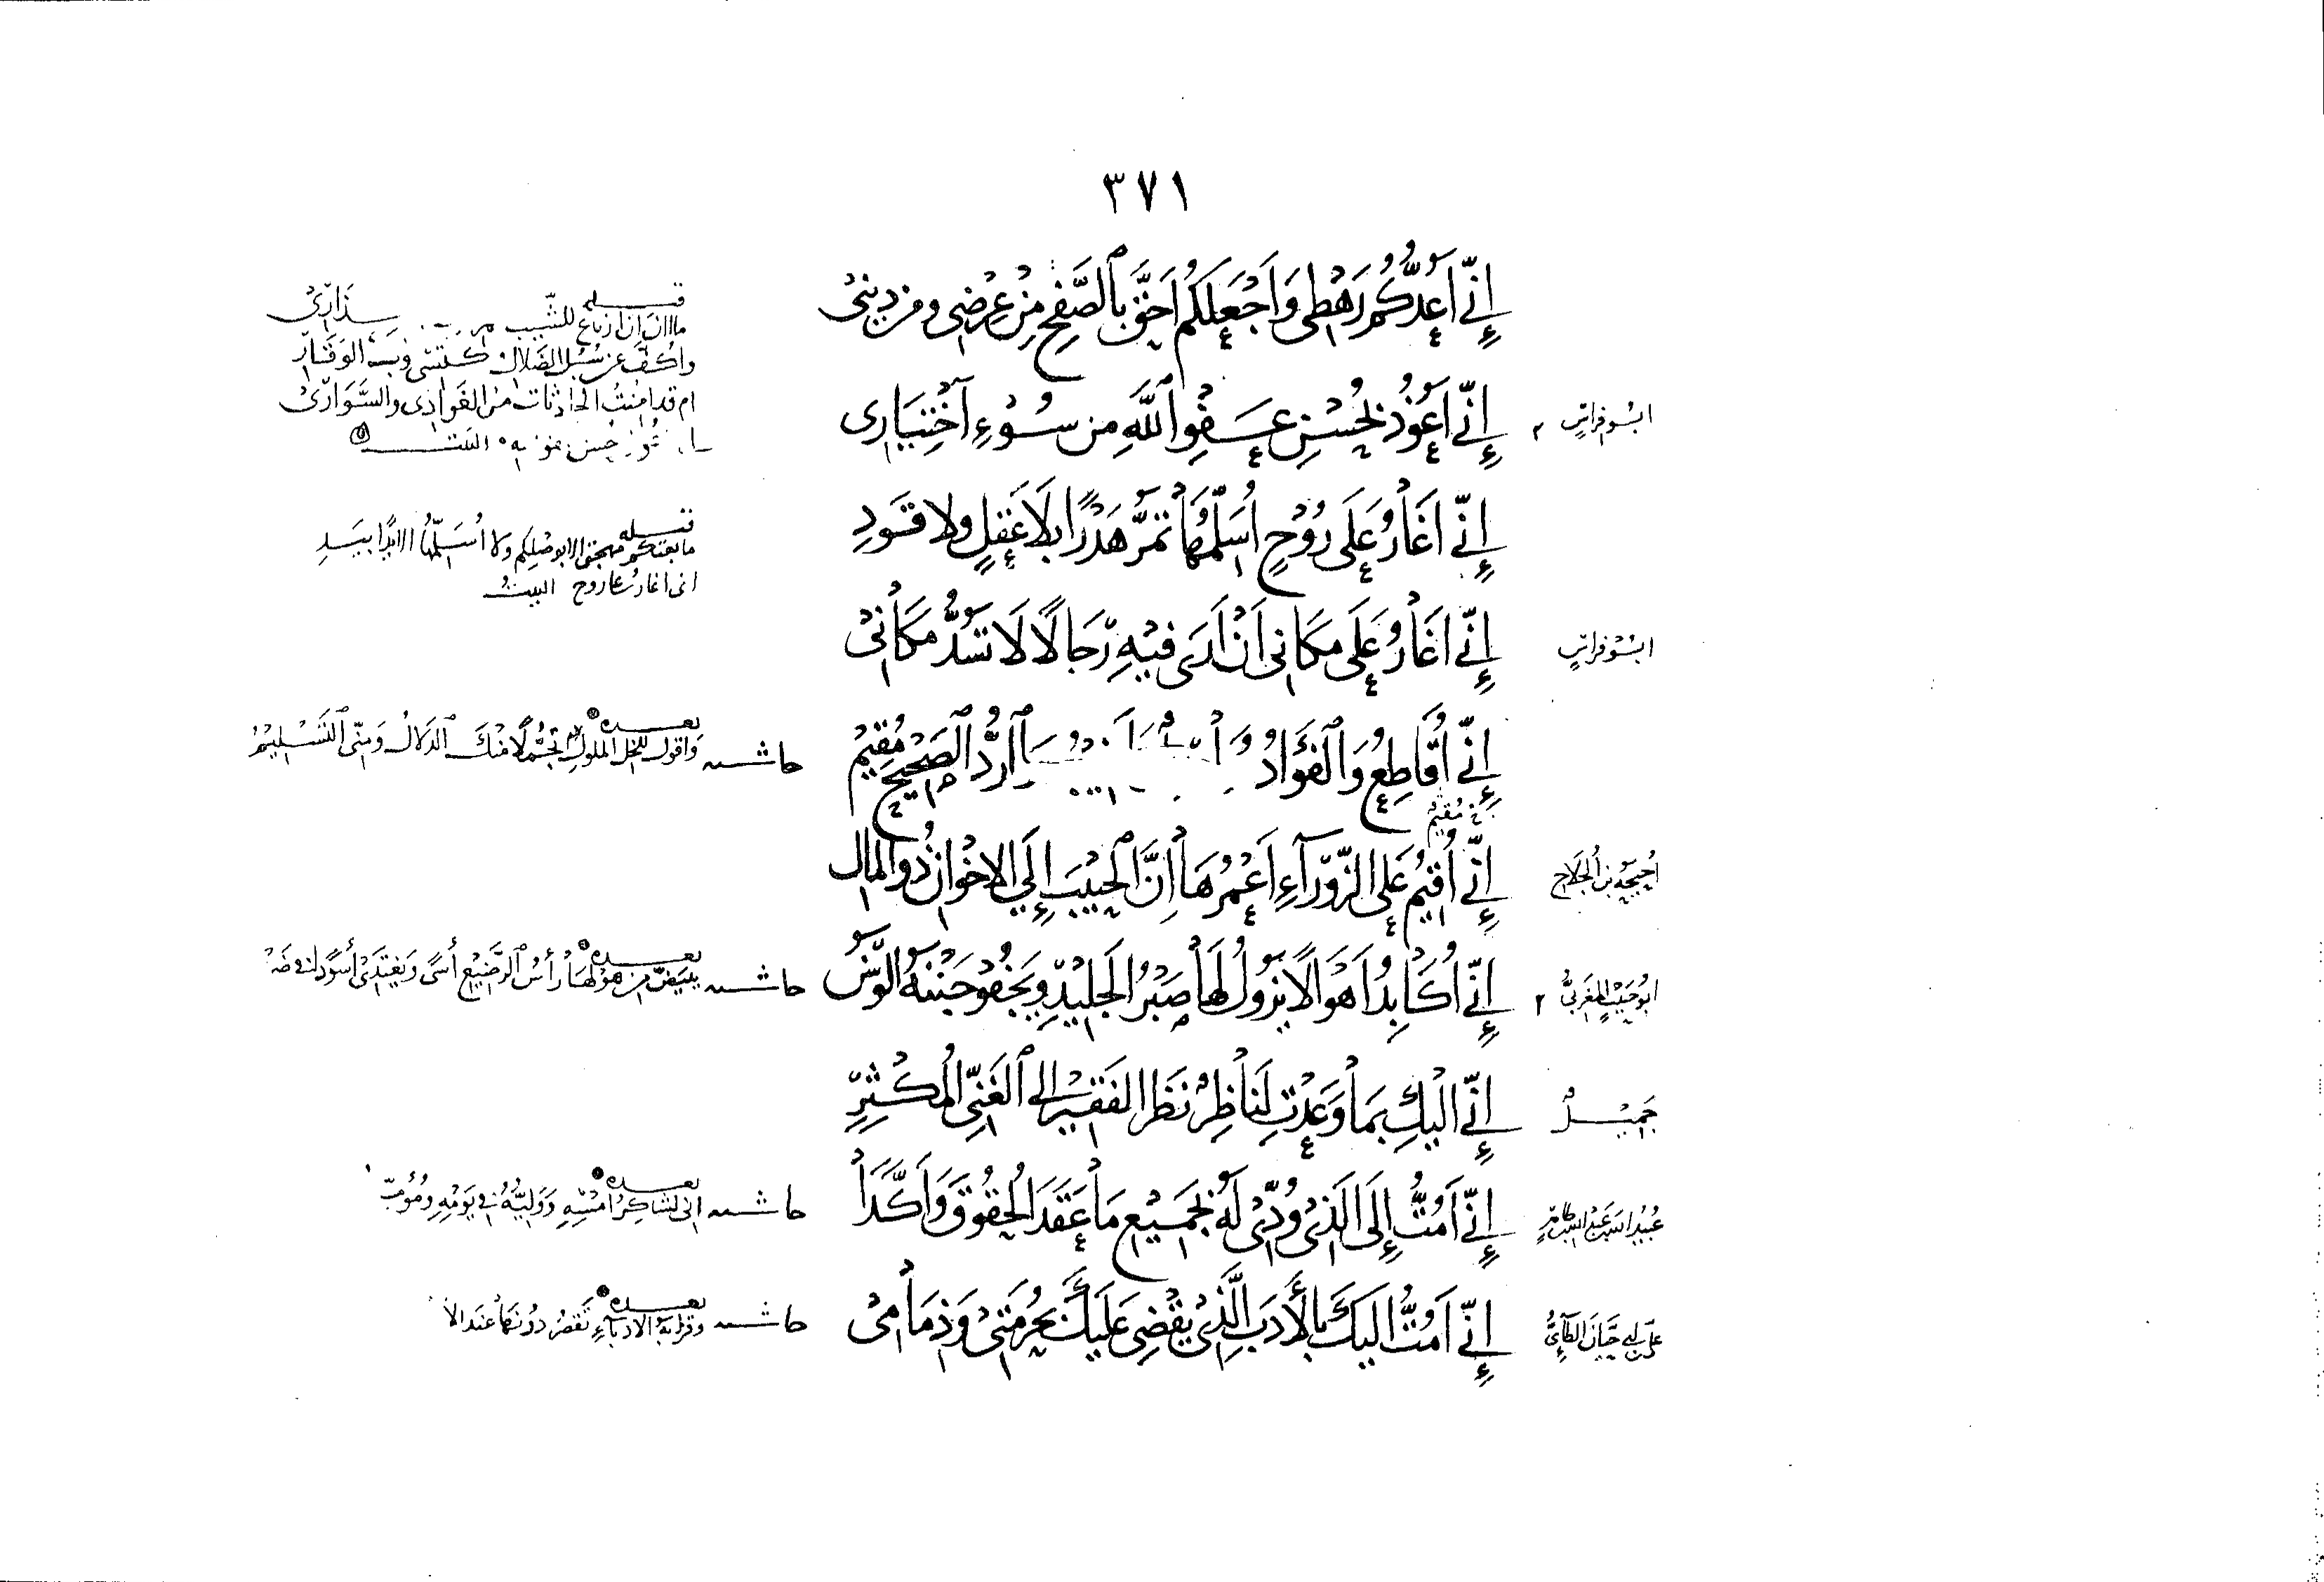 ٣٧١
إِنِّي أَعُدُّكُمُ رَهْطِي وَأَجْعَلُكُمْ أَحَقَّ بِالصَّفْحِ مِنْ عِرْضِي وَمِن دِينِي
قبله
ما آن أن أرتاع للشيب عذاري
وأكف عن سبل الضلال وأكتسي ثوب الوقار
أم قد أمنت الحادثات من الغوادي والسواري
البيت
ابو فراسٍ ٢
إِنِّي أَعُوذُ بِحُسْنِ عَفْوِ اللَّهِ مِن سُوءِ اخْتِيَارِي
إِنِّي أَغَارُ عَلَى رُوْحٍ أُسَلِّمُهَا تَمُرُّ هَدْرًا بِلَا عَقْلٍ ولا قَوَدِ
قبله
ما بعتكم مهجتي الا بوصلكم ولا اُسَلِّمُهَا الا يَدًا بِيَدِ
انى اغار على روح البيت
ابو فراسٍ
إِنِّي أَغَارُ عَلَى مَكَانِي أَنْ أَرَى فِيْهِ رِجَالًا لَا تَسُدُّ مَكَانِي
إِنِّي أُقَاطِعُ وَالْفُؤَادُ الصَّحِيحُ مُقِيمُ
حاشيه بعده
وَاقول للخل الملولِ تجمُّلًا مِنْكَ الدَلَالُ وَمِنِّي التَّسْلِيمُ
خ مُقِيمٌ
اُحيحة بن الجلاح
إِنِّي أُقِيمُ عَلَى الزَّوْرَآءِ أَعْمُرُهَا إِنَّ الْحَبِيبَ إِلَى الإِخْوَانِ ذُو الْمَالِ
ابو حبيبٍ المغربيُّ ٢
إِنِّي أُكَابِدُ أَهْوَالًا يَزُولُ لَهَا صَبْرُ الْجَلِيدِ وَيَجْفُو جَنْبَهُ
حاشيه بعده
يبيضّ من هَوْلِهَا رأسُ الرَّضِيْعِ أسًى وَيَغْتَدي
جَمِيْلٌ
إِنِّي إِلَيْكِ بِمَا وَعَدْتِ لَنَاظِرٌ نَظَرَ الْفَقِيرِ إِلَى الْغَنِيِّ الْمُكْثِرِ
عُبَيْد الله بن عبد الله بن طاهرٍ
إِنِّي أَمُتُّ إِلَى الَّذِي وُدِّي لَهُ بِجَمِيْعِ مَا عَقَدَ الْحُقُوْقَ وَأَكَّدَا
حاشيه بعده
انى لشاكرُ امْسِهِ وَوَلِيُّهُ فِي يَوْمِهِ وَمُؤَمِّ
إِنِّي أَمُتُّ إِلَيْكَ بِالْأَدَبِ الَّذِي يَقْضِي عَلَيْكَ بِحُرْمَتِي وَذِمَامِي
حاشيه بعده
وَقرابة الادبآءِ تَقصُر دُونهَا عندَ الا